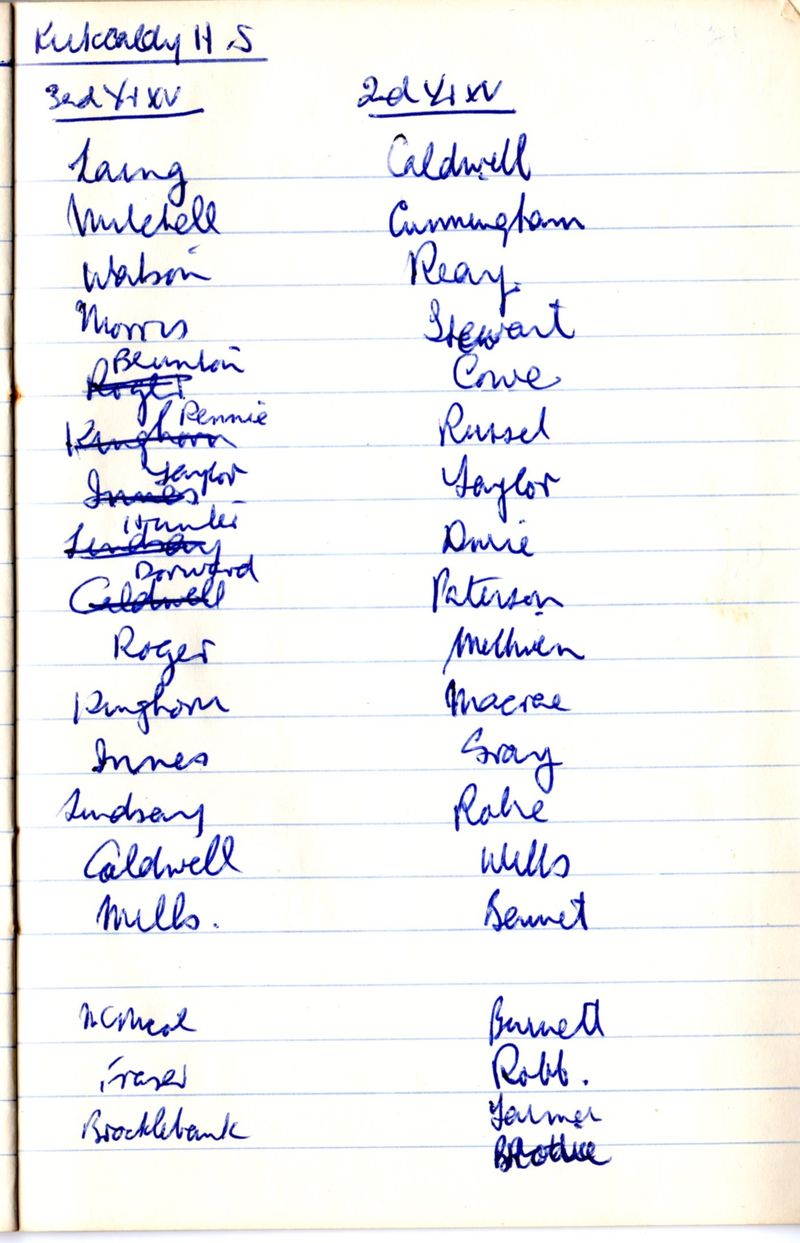 Kirkcaldy H S
3rd Yr XV
Laing
Mitchell
Watson
Morris
Brunton
Roger
Rennie
Kinghorn
Taylor
Innes
Hunter
Lindsay
Dorward
Caldwell
Roger
Kinghorn
Innes
Lindsay
Caldwell
Mills.
McNeal
Fraser
Brocklebank
2nd Yr XV
Caldwell
Cunningham
Reay.
Stewart
Cowe
Russel
Taylor
Paterson
Methven
Macrae
Gray
Wills
Bennet
Burnett
Robb.
Farmer